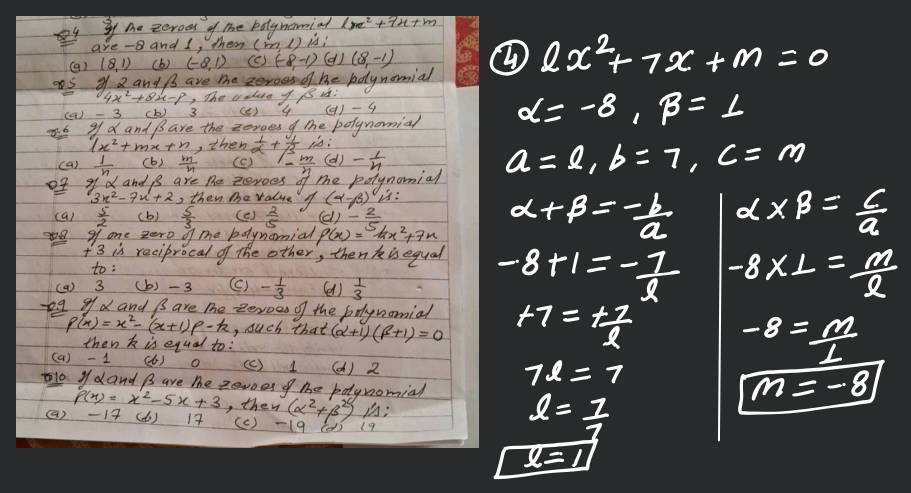 Q.4 If the zeroes of the polynomial lx² + 7x + m
are -8 and 1, then (m, l) is:
(a) (8,1) (b) (-8,1) (c) (-8-1) (d) (8,-1)
Q.5 If 2 and β are the zeroes of the polynomial
4x² + 8x - p, the value of β is:
(a) - 3 (b) 3 (c) 4 (d) - 4
Q.6 If α and β are the zeroes of the polynomial
lx² + mx + n, then 1/α + 1/β is:
(a) 1/n (b) m/n (c) - m/n (d) - 1/n
Q.7 If α and β are the zeroes of the polynomial
3x² - 7x + 2, then the value of (α-β) is:
(a) 5/2 (b) 5/3 (c) 2/5 (d) - 2/5
Q.8 If one zero of the polynomial P(x) = kx² + 7x
+ 3 is reciprocal of the other, then k is equal
to:
(a) 3 (b) - 3 (c) - 1/3 (d) 1/3
Q.9 If α and β are the zeroes of the polynomial
P(x) = x² - (x+1)P - k, such that (α+1)(β+1) = 0
then k is equal to:
(a) - 1 (b) 0 (c) 1 (d) 2
Q.10 If α and β are the zeroes of the polynomial
P(x) = x² - 5x + 3, then (α² + β²) is:
(a) -17 (b) 17 (c) -19 (d) 19
④ lx² + 7x + m = 0
α = -8 , β = 1
a = l, b = 7, c = m
α + β = -b/a
-8 + 1 = -7/l
+7 = +7/l
7l = 7
l = 7/7
l = 1
α × β = c/a
-8 × 1 = m/l
-8 = m/1
m = -8